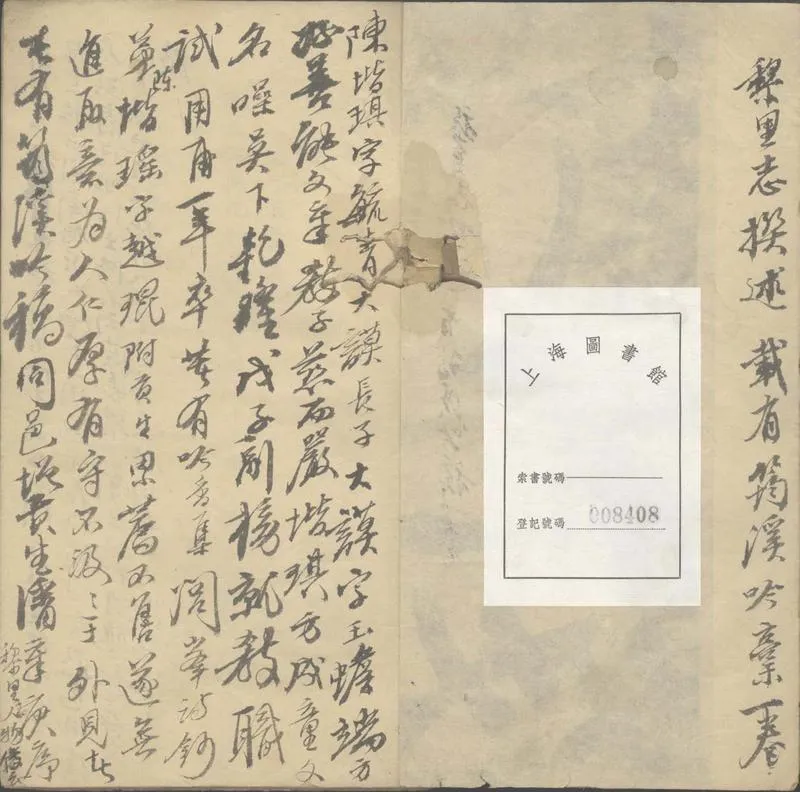 黎里志撰述 載有筠溪吟藁一卷
上海圖書館
索書號碼
登記號碼 008408
陳堦琪字毓青大謨長子大謨字玉蟾端方
好善能文章教子慈而嚴堦琪方成童文
名噪吳下乾隆戊子副榜就教職
試用甫一年卒著有吟香集 閬峯詩鈔
弟陳堦瑤字越琨附貢生累薦不售遂無
進取意為人仁厚有守不汲汲于外見者
著有筠溪吟稿同邑增貢生潘 庚序
黎里人物傳云